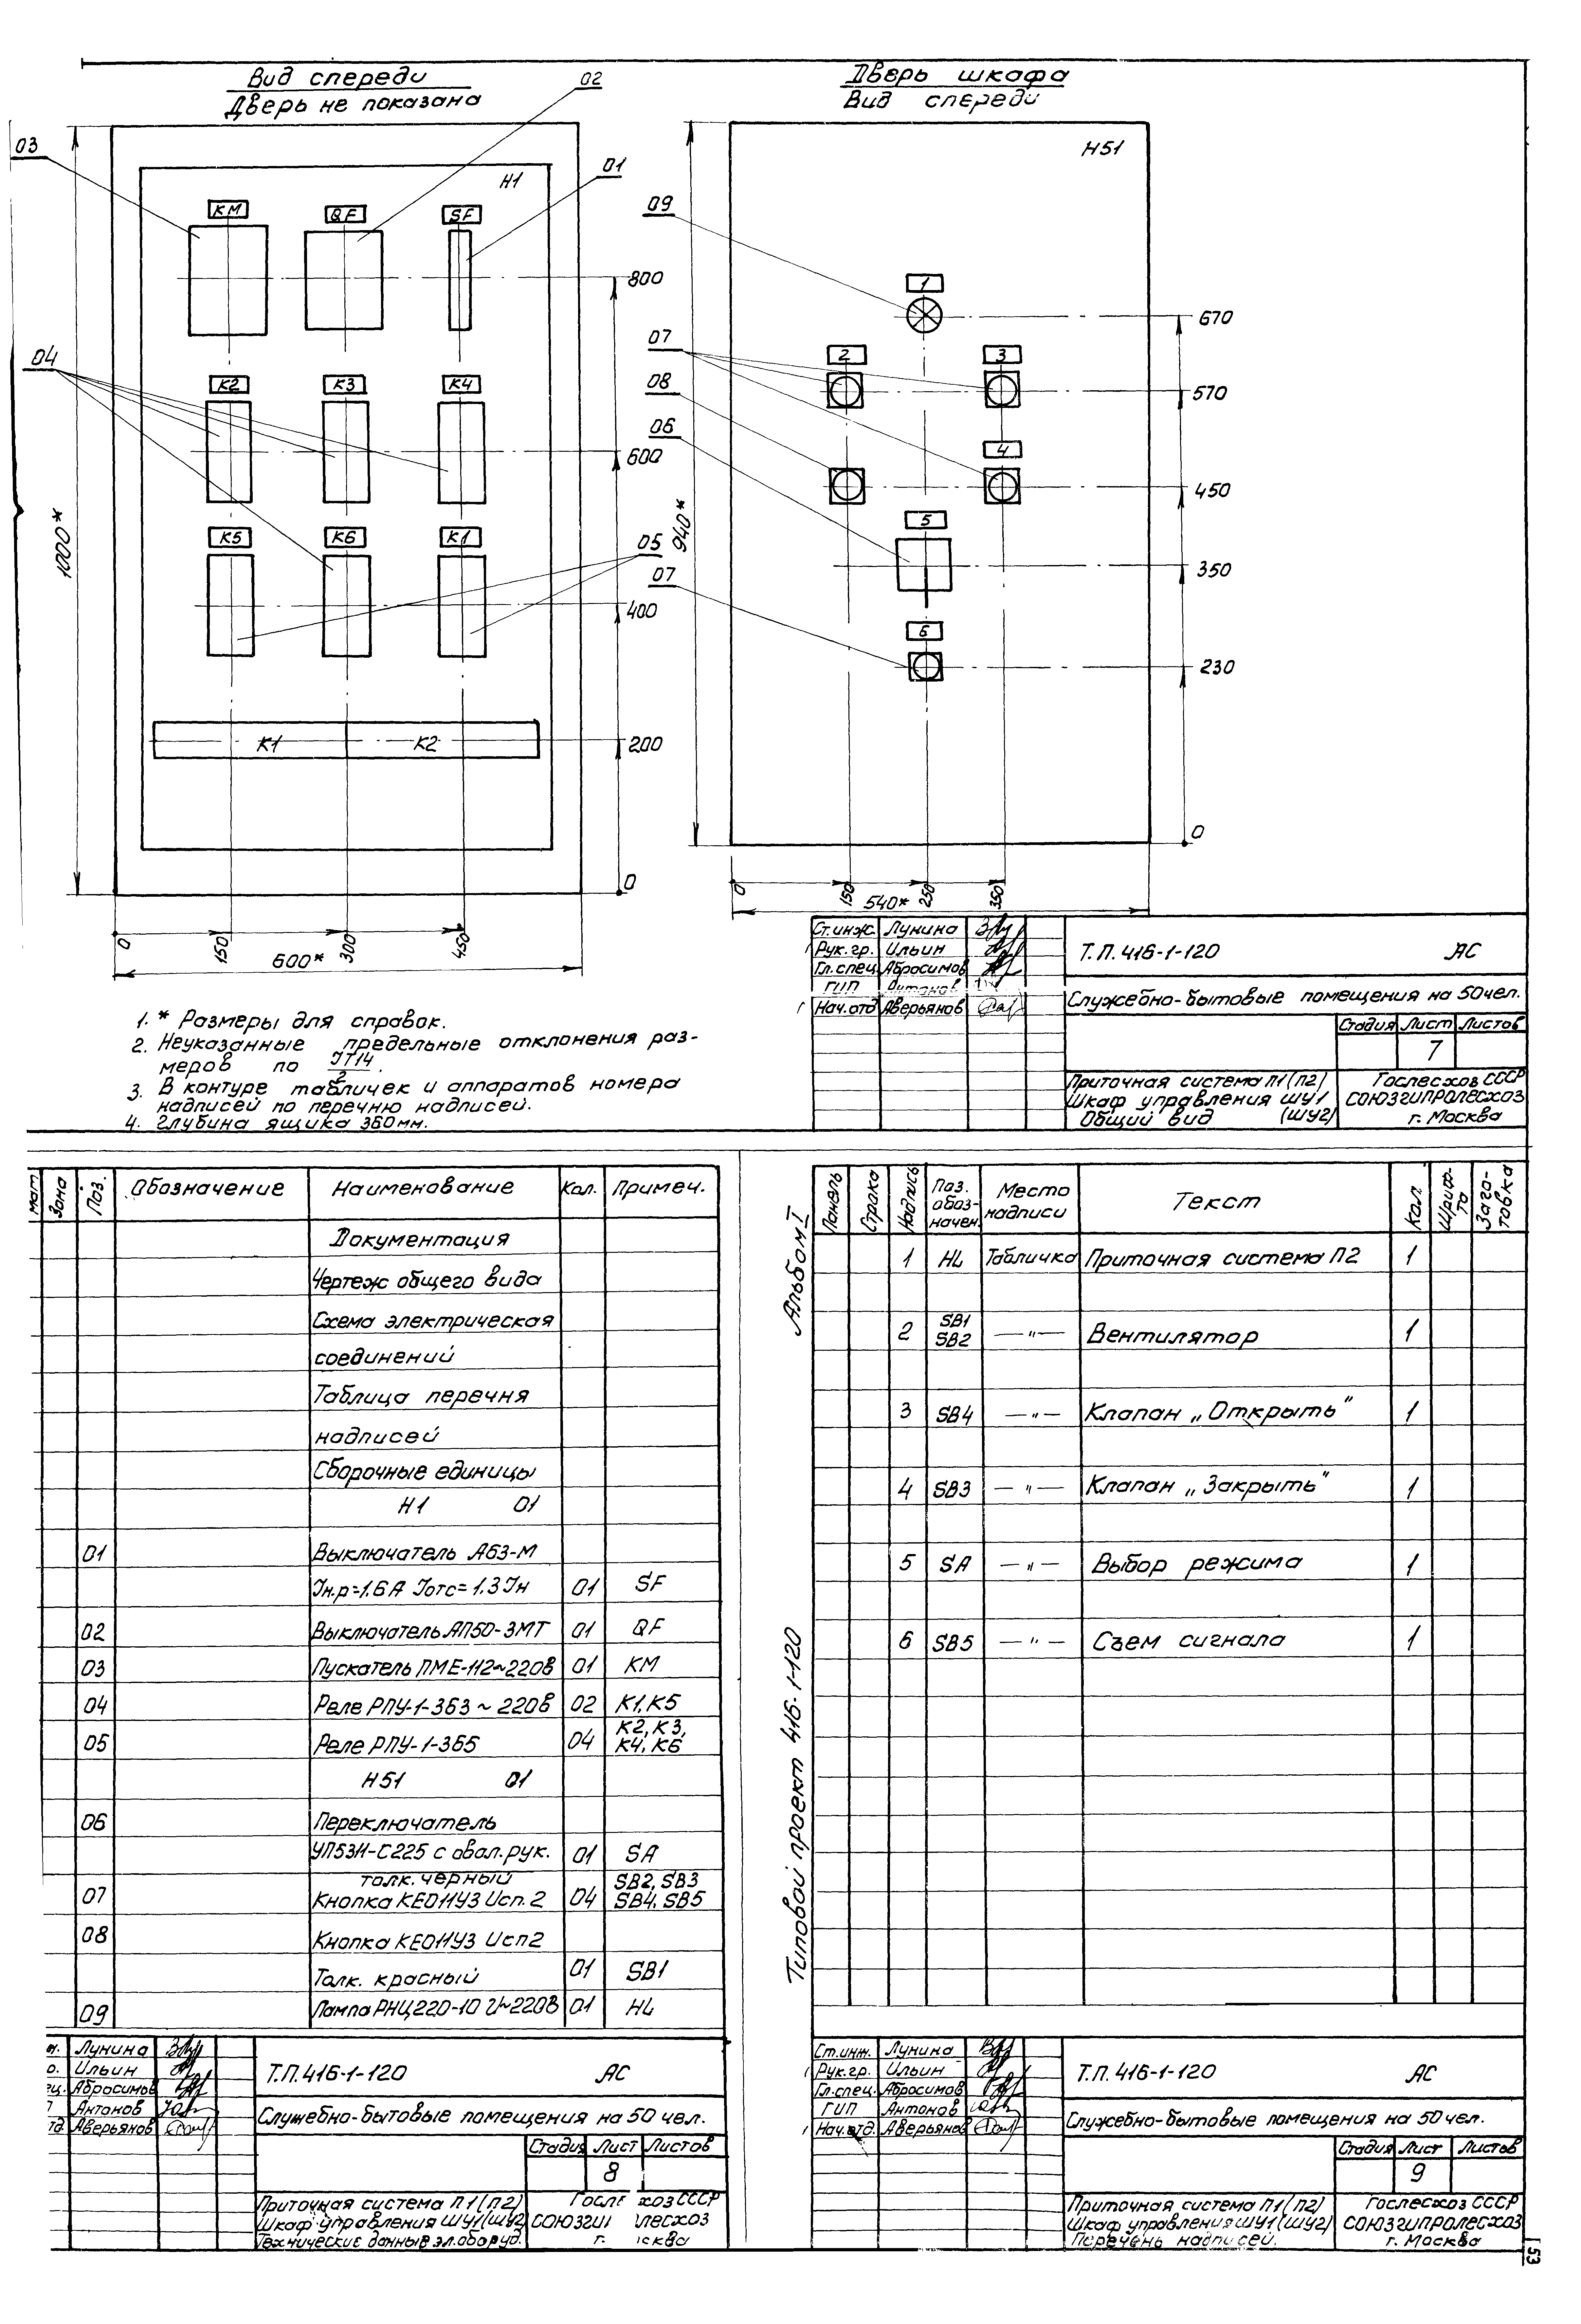 Вид спереди
Дверь не показана
02
03
01
Н1
КМ
QF
SF
800
04
К2
К3
К4
600
К5
К6
К1
05
400
К1
К2
200
0
1000*
0
150
300
450
600*
Дверь шкафа
Вид спереди
Н51
09
1
670
07
2
3
570
08
4
450
06
5
350
07
6
230
0
940*
0
150
250
350
540*
1. * Размеры для справок.
2. Неуказанные предельные отклонения раз-
меров по JT14/2.
3. В контуре табличек и аппаратов номера
надписей по перечню надписей.
4. Глубина ящика 360мм.
Ст.инж. Лунина
Рук.гр. Ильин
Гл.спец. Абросимов
ГИП Антонов
Нач.отд Аверьянов
Т.П.416-1-120 АС
Служебно-бытовые помещения на 50чел.
Стадия Лист Листов
7
Приточная система П1(П2)
Шкаф управления ШУ1
Общий вид (ШУ2)
Гослесхоз СССР
СОЮЗГИПРОЛЕСХОЗ
г. Москва
мат Зона Поз. Обозначение Наименование Кол. Примеч.
Документация
Чертеж общего вида
Схема электрическая
соединений
Таблица перечня
надписей
Сборочные единицы
Н1 01
01 Выключатель А63-М
Jн.р=1.6А Jотс=1.3Jн 01 SF
02 Выключатель АП50-3МТ 01 QF
03 Пускатель ПМЕ-112~220в 01 КМ
04 Реле РПУ-1-363 ~ 220в 02 К1, К5
05 Реле РПУ-1-365 04 К2, К3, К4, К6
Н51 01
06 Переключатель
УП53Н-С225 с овал.рук. 01 SA
толк.черный
07 Кнопка КЕ011У3 Исп.2 04 SB2, SB3 SB4, SB5
08 Кнопка КЕ011У3 Исп2
Толк. красный 01 SB1
09 Лампа РНЦ220-10 U~220В 01 HL
н. Лунина
р. Ильин
ец. Абросимов
П Антонов
тд. Аверьянов
Т.П.416-1-120 АС
Служебно-бытовые помещения на 50 чел.
Стадия Лист Листов
8
Приточная система П1(П2)
Шкаф управления ШУ1(ШУ2)
Технические данные эл.оборуд.
Госле хоз СССР
СОЮЗГИ лесхоз
г. сква
Альбом I
Типовой проект 416-1-120
Панель Строка Надпись Поз. обоз-начен. Место надписи Текст Кол. Шриф-та Заго-товка
1 HL Табличка Приточная система П2 1
2 SB1 SB2 —"— Вентилятор 1
3 SB4 —"— Клапан „Открыть" 1
4 SB3 —"— Клапан „Закрыть" 1
5 SA —"— Выбор режима 1
6 SB5 —"— Съем сигнала 1
Ст.инж. Лунина
Рук.гр. Ильин
Гл.спец. Абросимов
ГИП Антонов
Нач.отд. Аверьянов
Т.П.416-1-120 АС
Служебно-бытовые помещения на 50чел.
Стадия Лист Листов
9
Приточная система П1(П2)
Шкаф управления ШУ1(ШУ2)
Перечень надписей.
Гослесхоз СССР
СОЮЗГИПРОЛЕСХОЗ
г. Москва
53